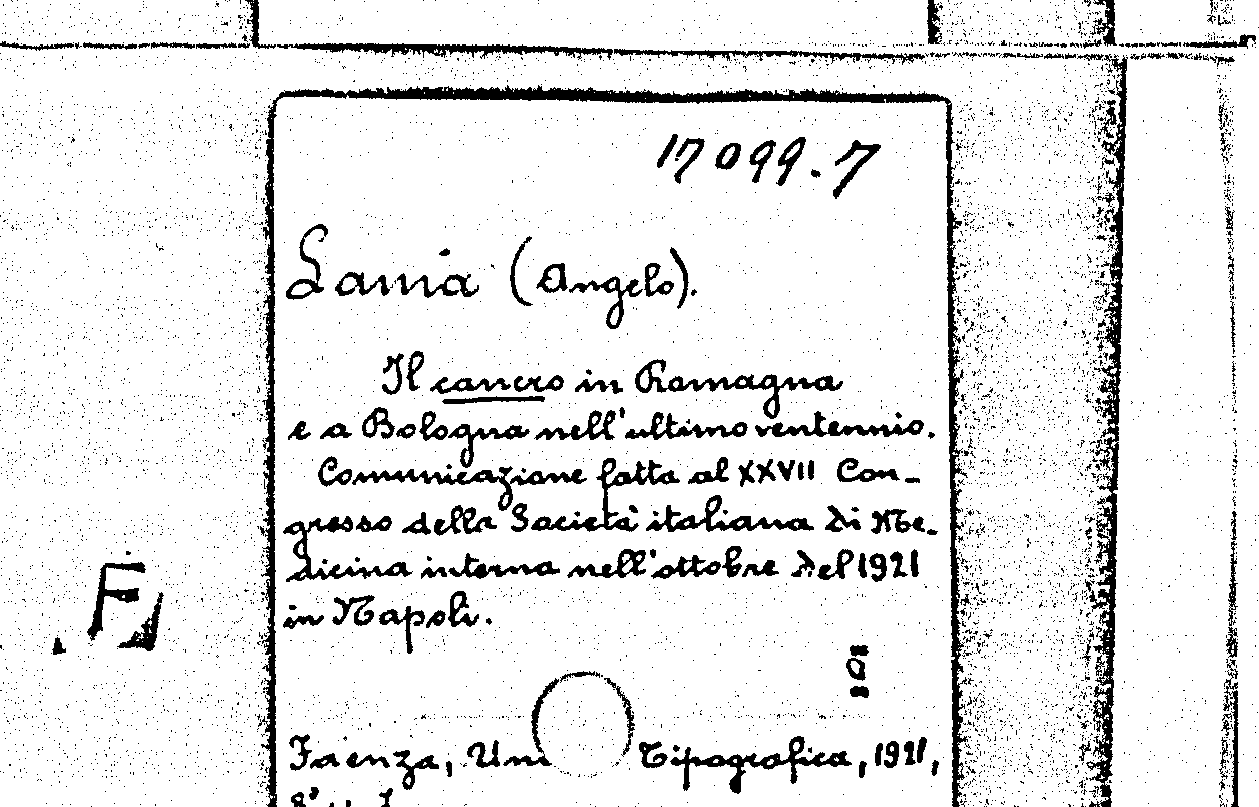 17099.7
Lama (Angelo).
Il cancro in Romagna
e a Bologna nell'ultimo ventennio.
Comunicazione fatta al XXVII Con-
gresso della Società italiana di Me-
dicina interna nell'ottobre del 1921
in Napoli.
F
Faenza, Uni Tipografica, 1921,
8°